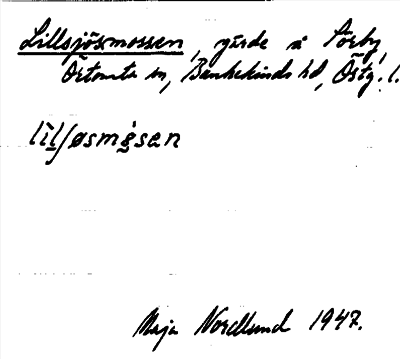 Lillsjösmossen, gärde å Törby,
Örtomta sn, Bankekinds hd, Östg. l.
lìlʃøsmå̀sen
Maja Nordlund 1947.